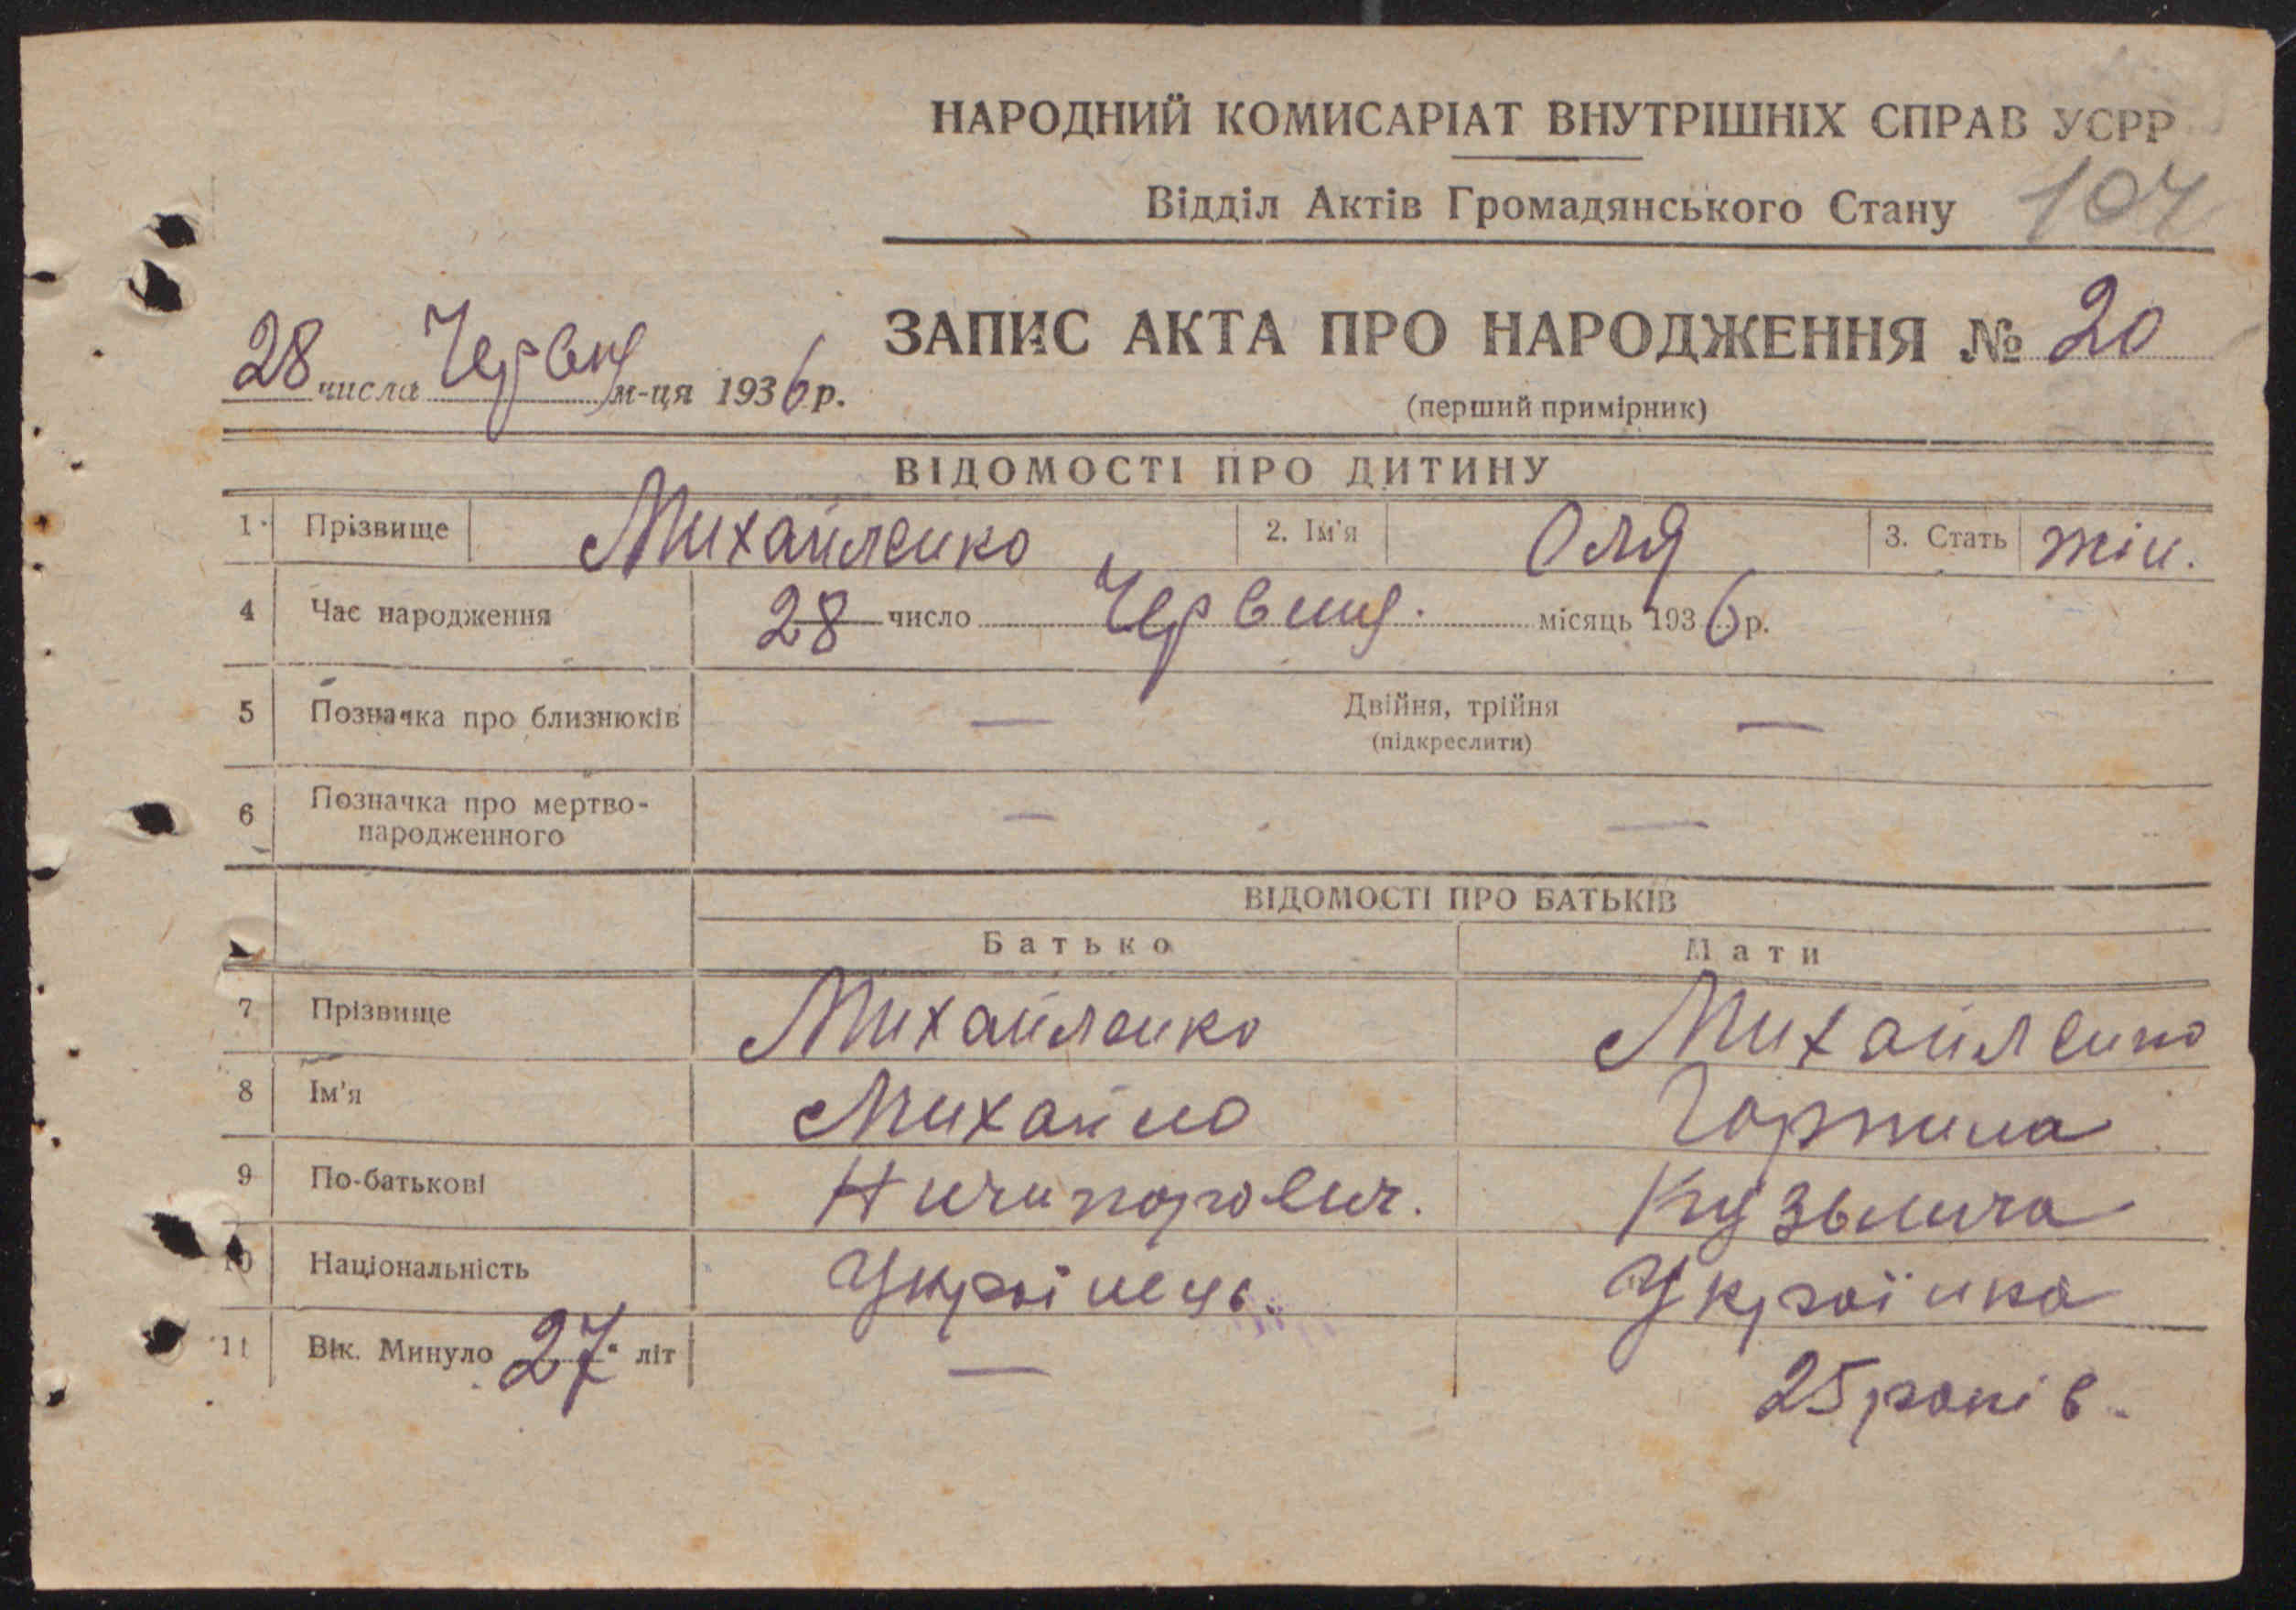 НАРОДНИЙ КОМИСАРІАТ ВНУТРІШНІХ СПРАВ УСРР
Відділ Актів Громадянського Стану 104
ЗАПИС АКТА ПРО НАРОДЖЕННЯ № 20
28 числа Червня м-ця 1936 р.
(перший примірник)
ВІДОМОСТІ ПРО ДИТИНУ
1. Прізвище Михайленко 2. Ім'я Оля 3. Стать жін.
4 Час народження 28 число Червня. місяць 1936 р.
5 Позначка про близнюків — Двійня, трійня —
(підкреслити)
6 Позначка про мертво-
народженного — —
ВІДОМОСТІ ПРО БАТЬКІВ
Батько Мати
7 Прізвище Михайленко Михайленко
8 Ім'я Михайло Горпина
9 По-батькові Ничипорович. Кузьмича
10 Національність Українець. Українка
11 Вік. Минуло 27 літ — 25 років.